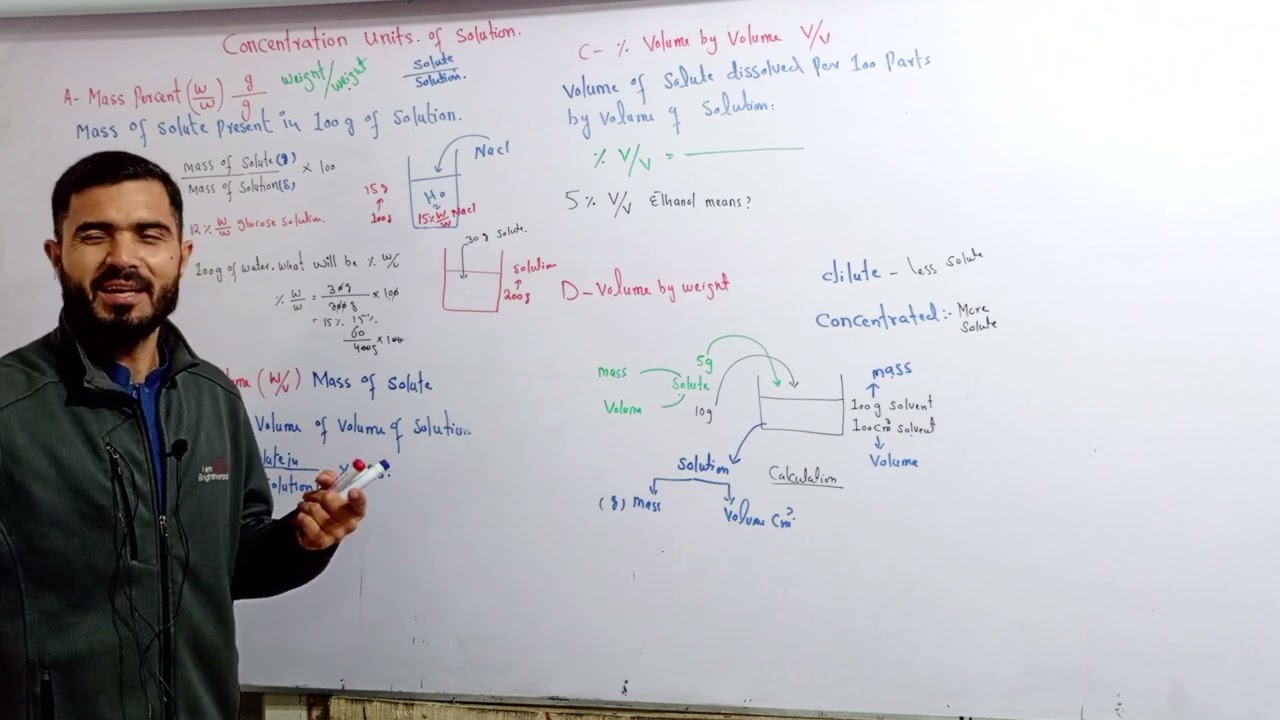 Concentration Units of Solution.
A- Mass Percent (W/W) g/g weight/weight Solute/Solution.
Mass of solute Present in 100g of Solution.
mass of Solute(g)
Mass of Solution(g) × 100
Nacl
H2O
15% W/W Nacl
15g
100g
12% W/W glucose solution.
100g of water. What will be % W/
30g Solute.
solution
200g
% W/W = 30g/200g × 100
= 15% 15%.
60/400g × 100
(W/V) Mass of Solute
Volume of Volume of Solution
I am
C- % Volume by Volume V/V
Volume of Solute dissolved Per 100 Parts
by Volume of Solution:
% V/V =
5% V/V Ethanol means?
D- Volume by weight
dilute - less solute
Concentrated:- More
Solute
mass
Volume
Solute
5g
10g
mass
100g solvent
100cm³ solvent
Volume
Solution
Calculation
(g) mass
Volume cm³